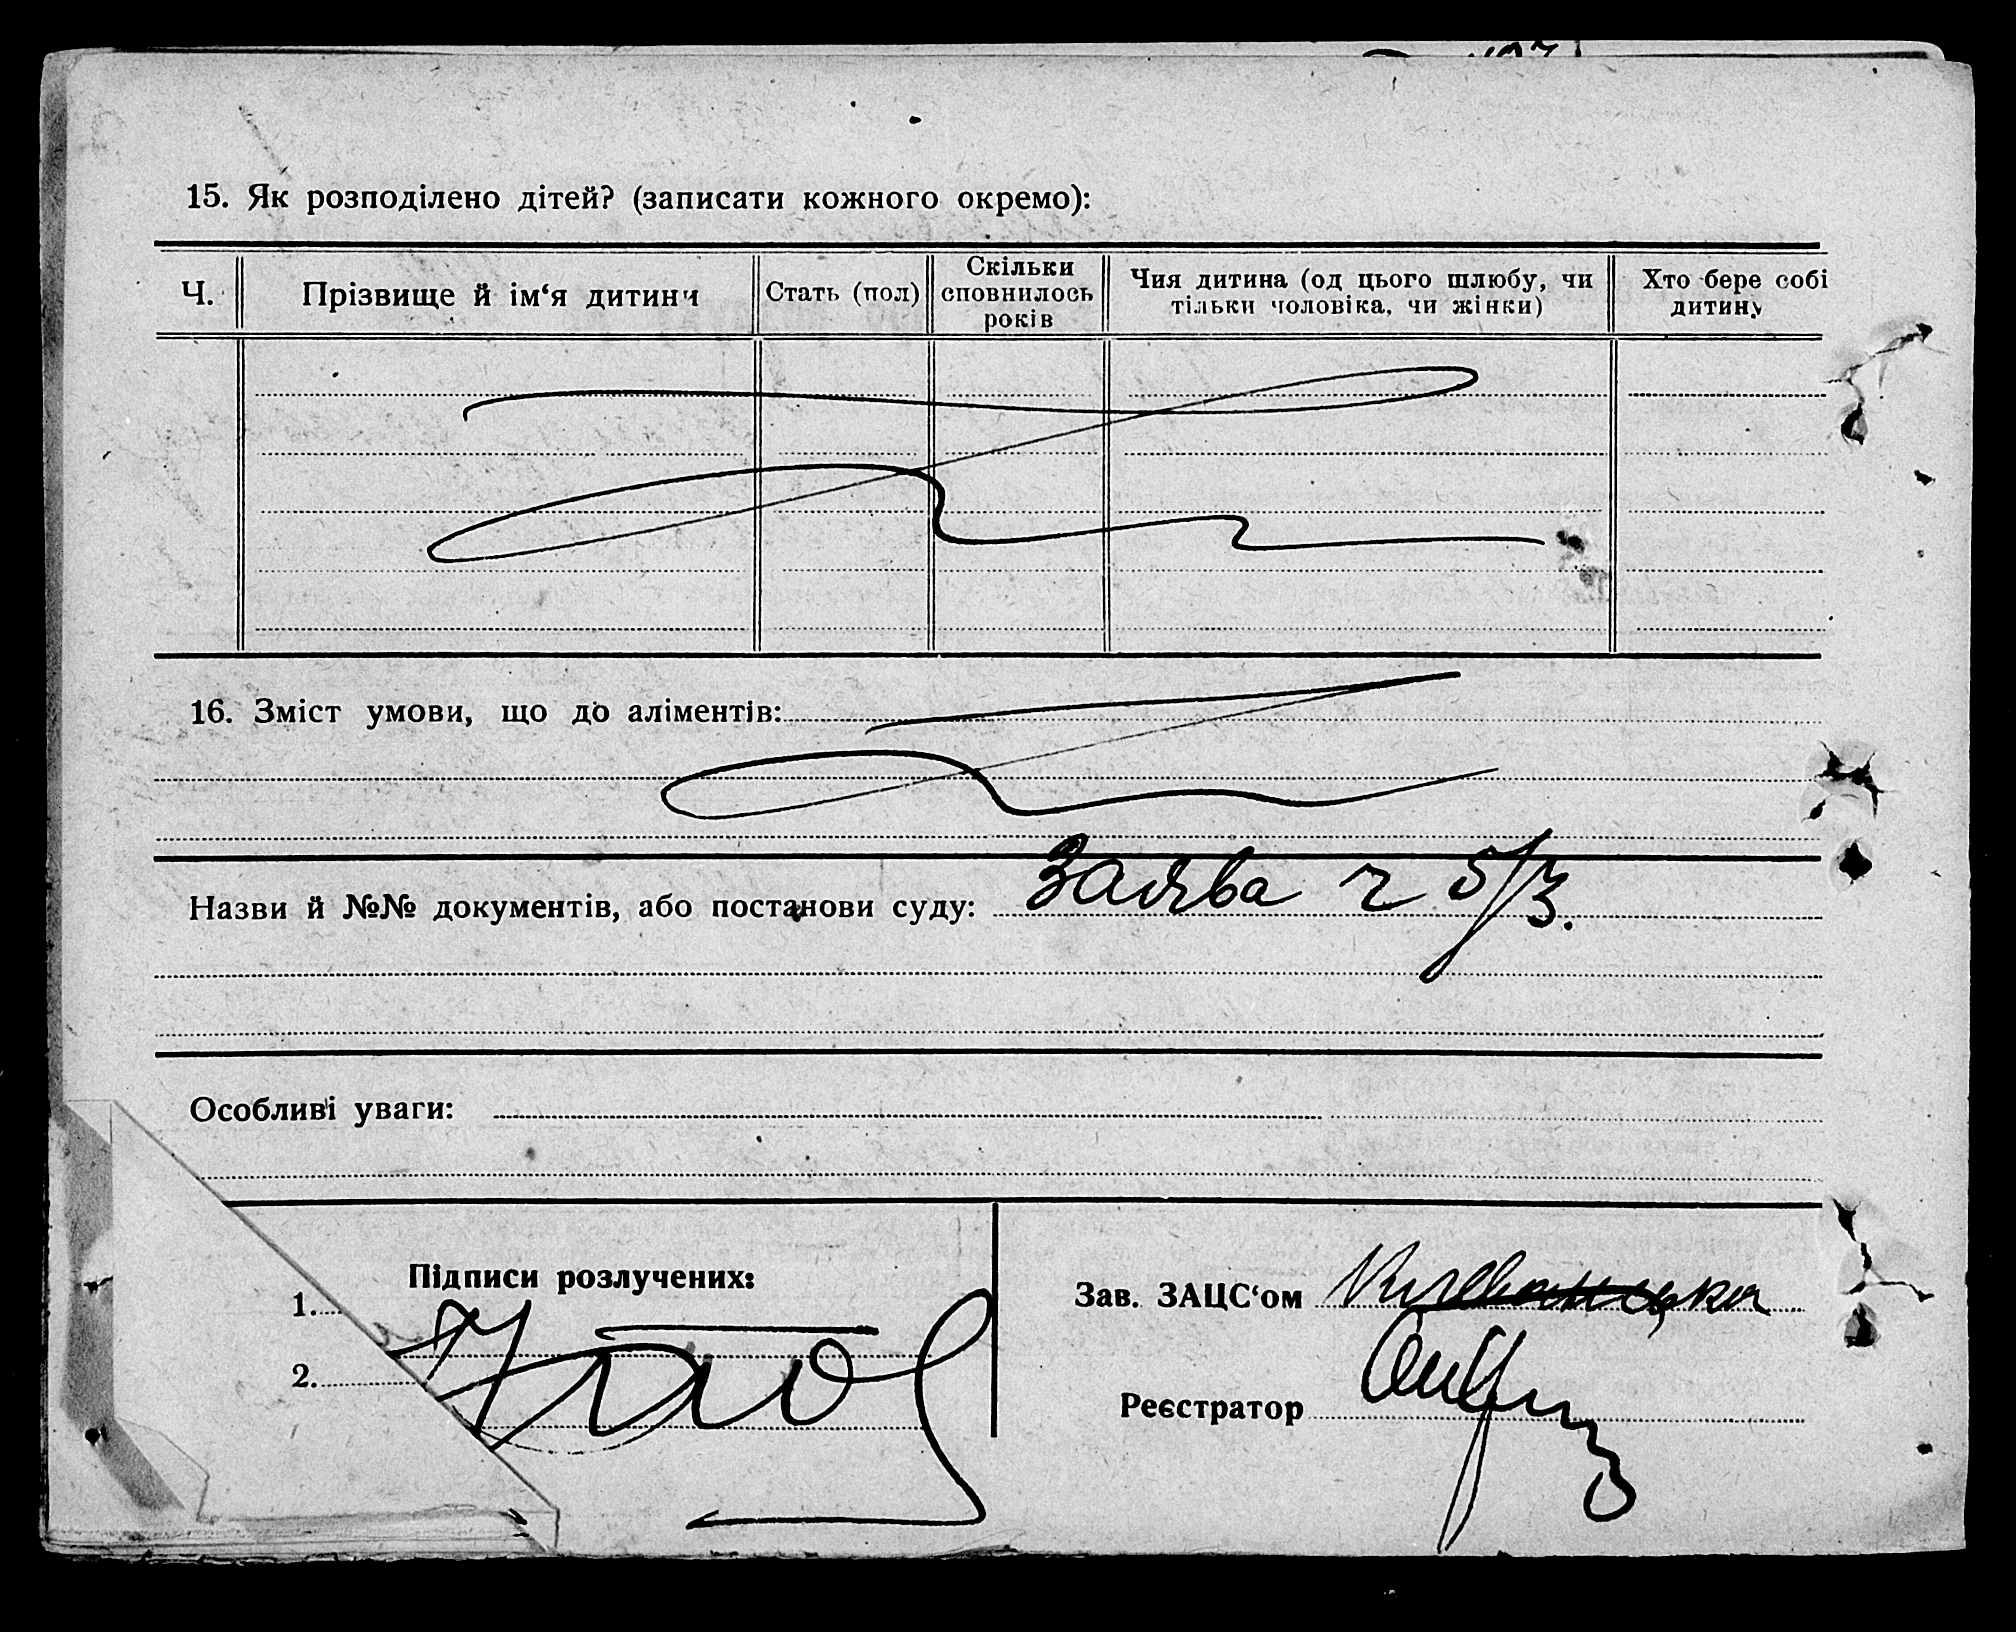 15. Як розподілено дітей? (записати кожного окремо):
Ч.
Прізвище й ім‘я дитини
Стать (пол)
Скільки
сповнилось
років
Чия дитина (од цього шлюбу, чи
тільки чоловіка, чи жінки)
Хто бере собі
дитину
16. Зміст умови, що до аліментів:
Назви й №№ документів, або постанови суду: Заява ч 5/3.
Особливі уваги:
Підписи розлучених:
1.
2.
Зав. ЗАЦС‘ом
Реєстратор